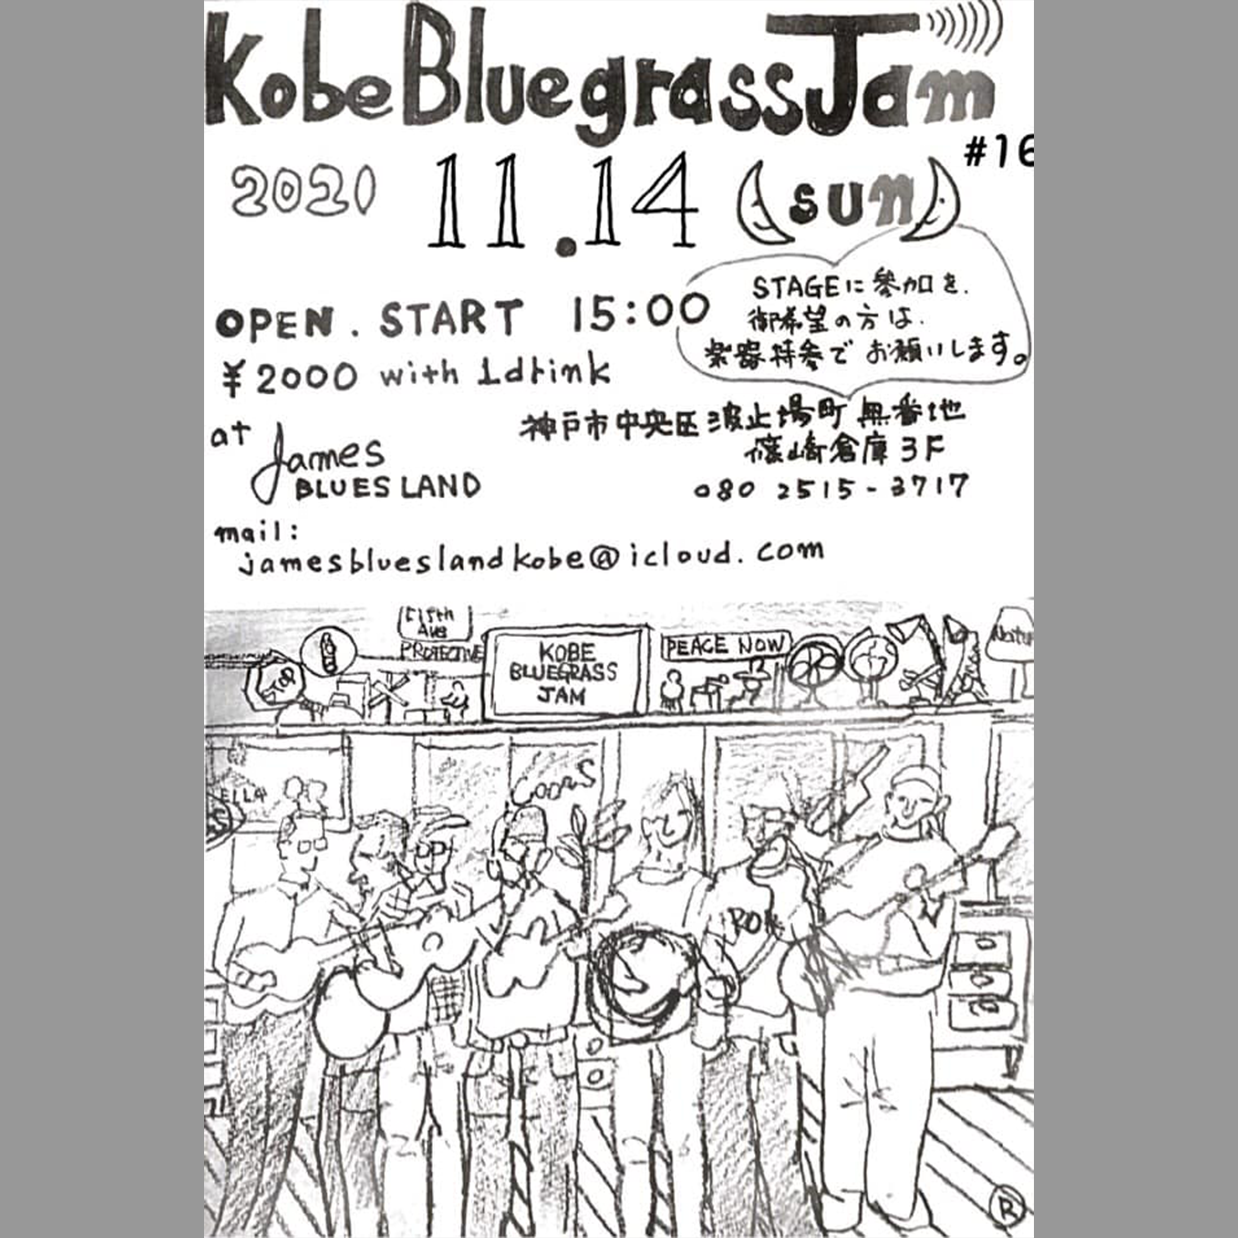 Kobe Bluegrass Jam
#16
2021 11.14 (sun)
STAGEに参加を、
御希望の方は、
楽器持参でお願いします。
OPEN . START 15:00
¥2000 with 1drink
at James
BLUES LAND
神戸市中央区波止場町無番地
篠崎倉庫3F
080 2515-3717
mail:
jamesblueslandkobe@icloud.com
Fifth
Ave
PROTECTIVE
KOBE
BLUEGRASS
JAM
PEACE NOW
STOP
ELLA
Coors
R